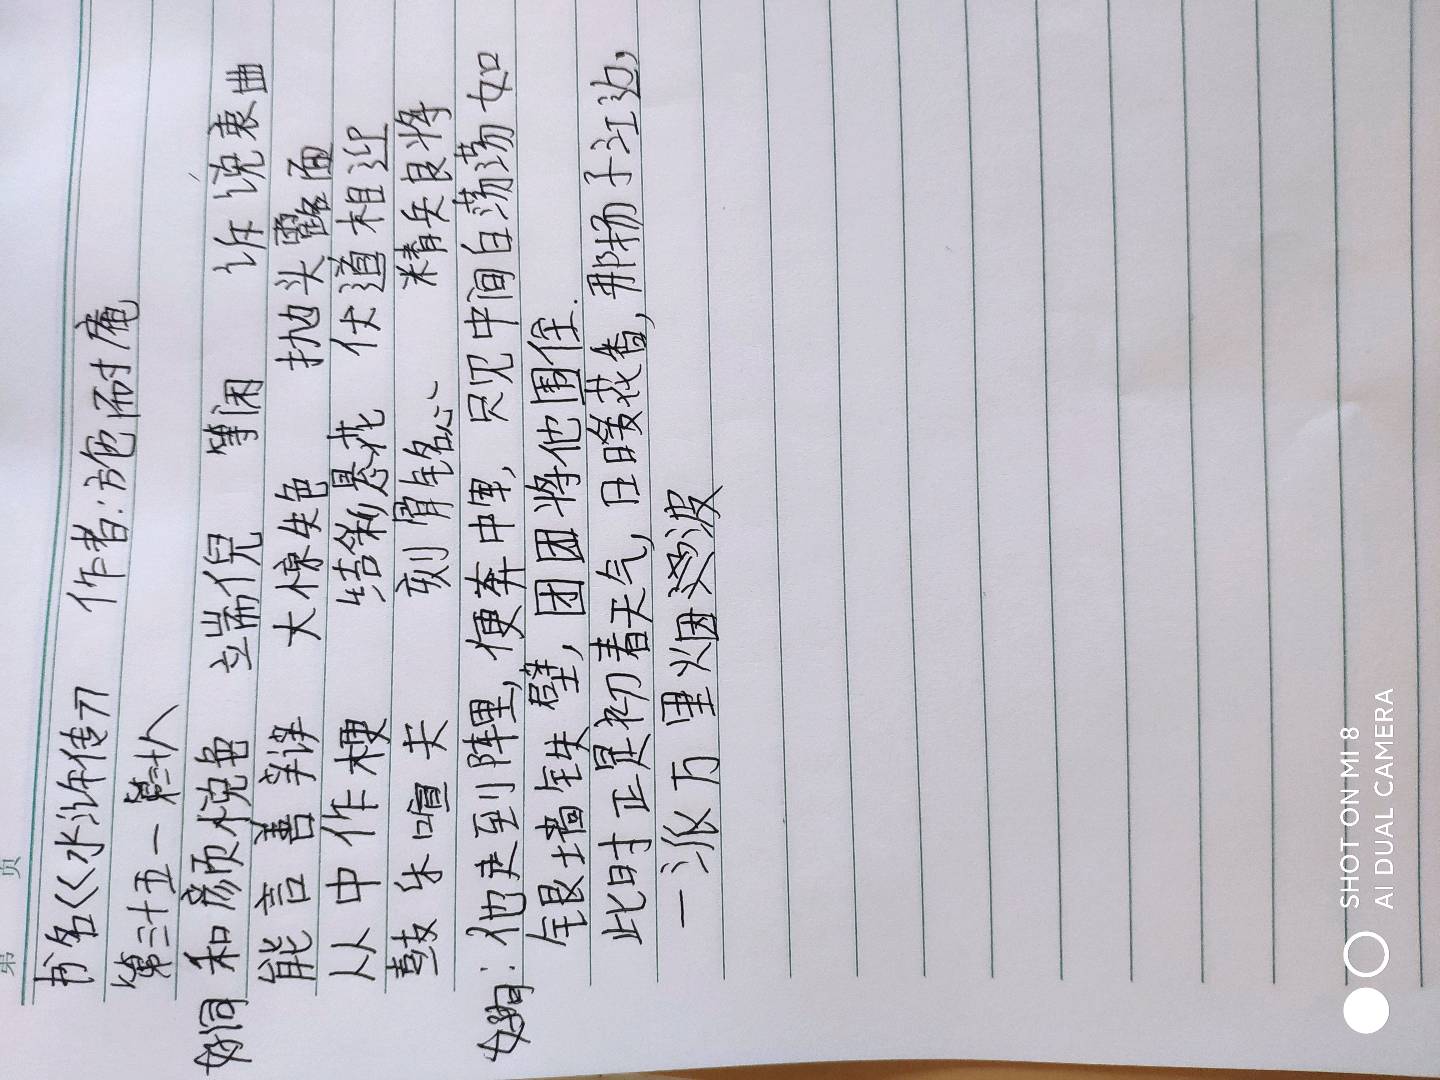 第 页
书名《水浒传》 作者:施耐庵
第三十五一第三十八
好词 和颜悦色 立端倪 等闲 诉说衷曲
能言善辩 大惊失色 抛头露面
从中作梗 结彩悬花 伏道相迎
鼓乐喧天 刻骨铭心 精兵良将
好句:他走到阵里,便奔中军,只见中间白荡荡如
银墙铁壁,团团将他围住.
此时正是初春天气,日暖花香,那扬子江边,
一派万里烟波
SHOT ON MI 8
AI DUAL CAMERA